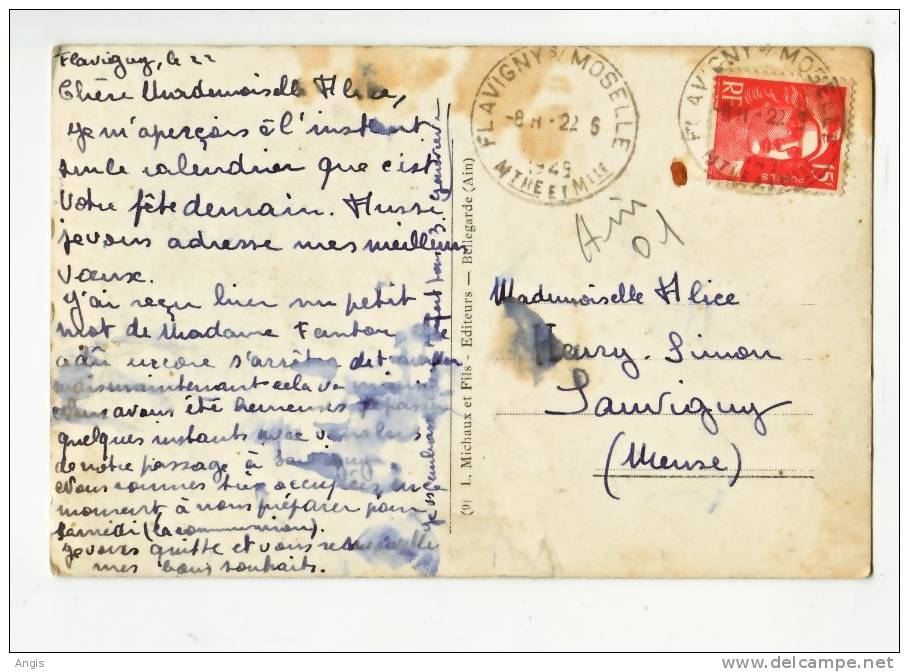 Flavigny, le 22
Chère Mademoiselle Alice,
Je m'aperçois à l'instant
sur le calendrier que c'est
votre fête demain. Aussi
je vous adresse mes meilleurs
vœux.
J'ai reçu hier un petit
mot de Madame Fanton elle
a dû encore s'arrêter de travailler
mais maintenant cela va mieux
Nous avons été heureuses de passer
quelques instants avec vous lors
de notre passage à Sauvigny.
Nous sommes très occupées, en ce
moment à nous préparer pour
samedi (la communion).
Je vous quitte et vous renouvelle
mes bons souhaits.
Je vous embrasse bien fort tous 3. Geneviève
(9) L. Michaux et Fils - Editeurs — Bellegarde (Ain)
FLAVIGNY S/ MOSELLE
-8 H - 22 6
1949
MTHE ET MLLE
FLAVIGNY S/ MOSELLE
RF
15F
POSTES
Ain
01
Mademoiselle Alice
Henry-Simon
Sauvigny
(Meuse)
Angis
www.delcampe.net